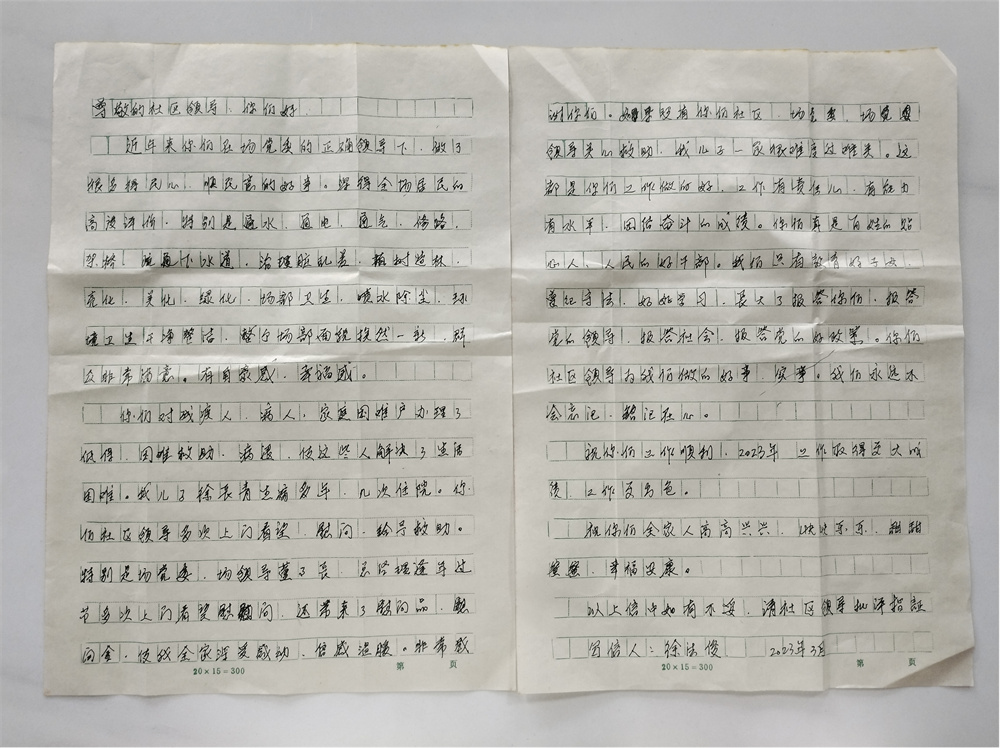 尊敬的社区领导、你们好
近年来你们在场党委的正确领导下，做了
很多得民心、顺民意的好事。深得全场居民的
高度评价，特别是通水、通电、通气、修路、
架桥、通下水道，治理脏乱差，植树造林、
亮化、美化、绿化、场部卫生，喷水除尘，环
境卫生干净整洁，整个场部面貌换然一新，群
众非常满意。有自豪感、幸福感。
你们对残疾人、病人、家庭困难户办理了
低保、困难救助、病退，使这些人解决了生活
困难。我儿子徐长青生病多年，几次住院。你
们社区领导多次上门看望、慰问、给予救助。
特别是场党委、场领导董事长、总经理逢年过
节多次上门看望慰问，还带来了慰问品、慰
问金，使我全家深受感动，倍感温暖。非常感
谢你们。如果没有你们社区、场党委
领导关心救助，我儿子一家很难度过难关。这
都是你们工作做的好，工作有责任心，有能力
有水平，团结奋斗的成绩。你们真是百姓的贴
心人、人民的好干部。我们只有教育好子女，
遵纪守法，好好学习，长大了报答你们，报答
党的领导，报答社会，报答党的好政策。你们
社区领导为我们做的好事、实事。我们永远不
会忘记，铭记在心。
祝你们工作顺利，2023年工作取得更大成
绩，工作更出色。
祝你们全家人高高兴兴、快快乐乐、甜甜
蜜蜜、幸福安康。
以上信中如有不妥，请社区领导批评指正
写信人：徐法俊 2023年3月
20×15=300 第 页
20×15=300 第 页